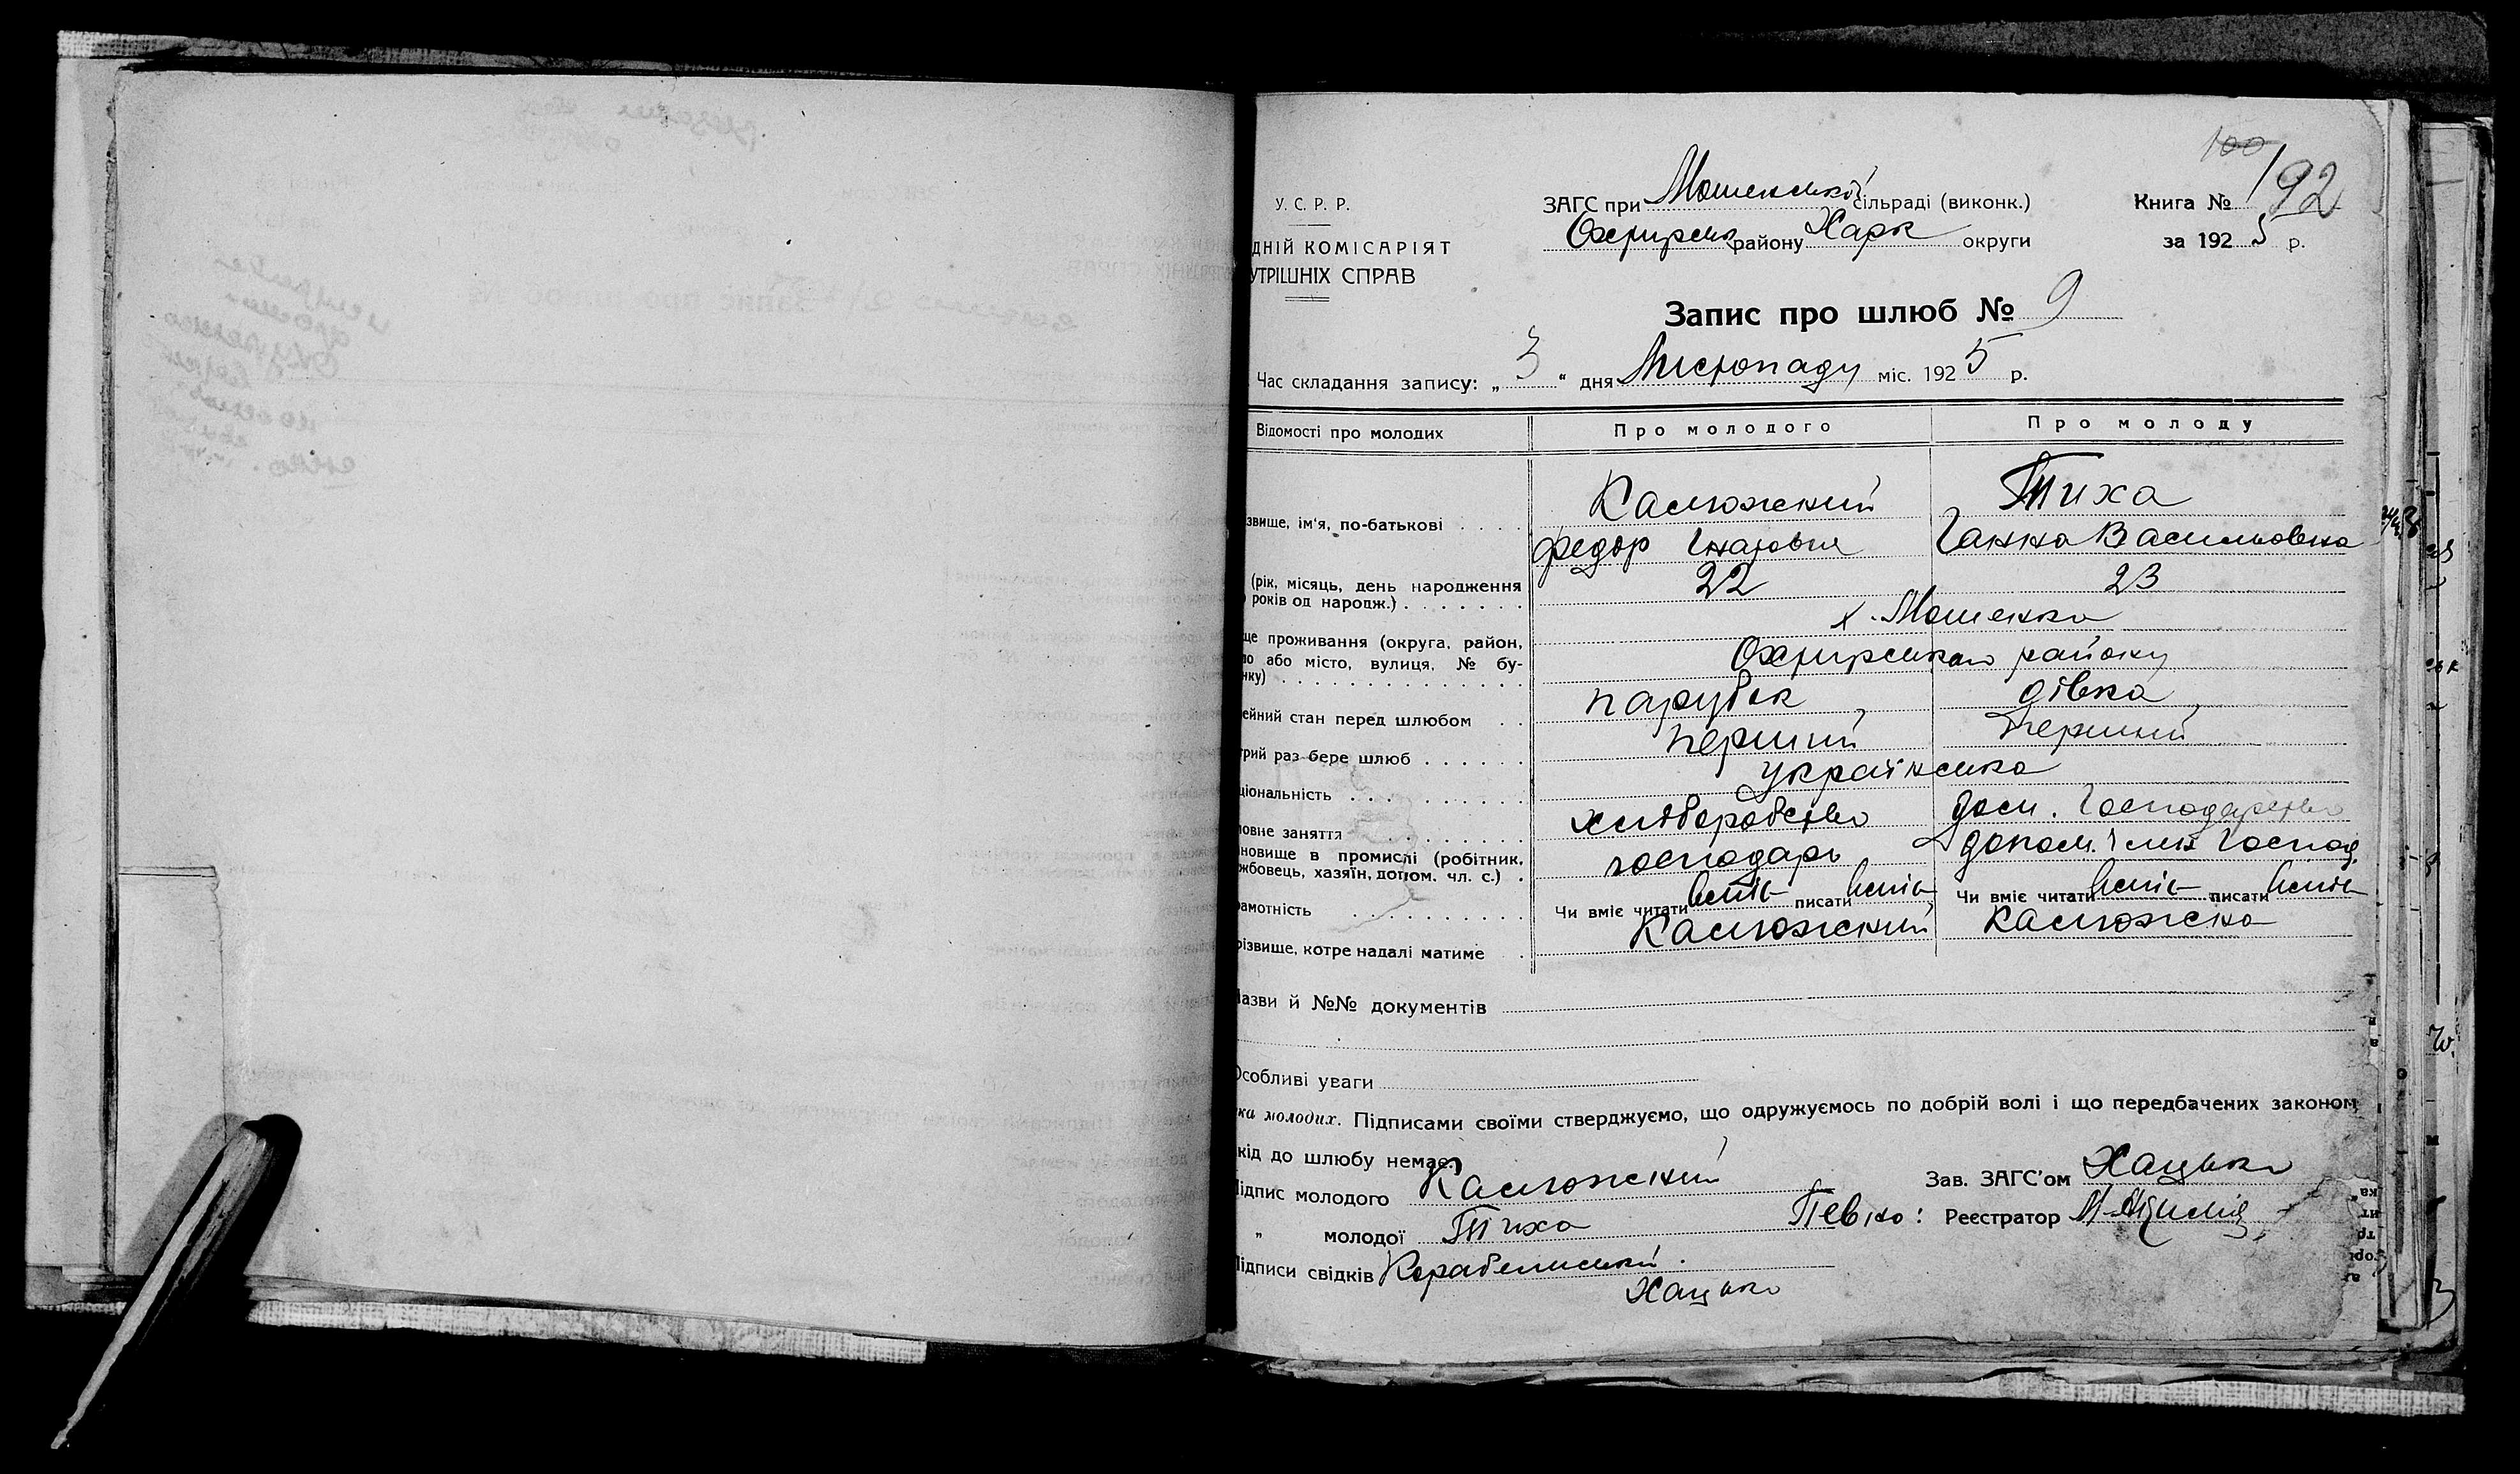 100
192
У. С. Р. Р.
ДНІЙ КОМІСАРІЯТ
УТРІШНІХ СПРАВ
ЗАГС при Мошенської сільраді (виконк.)
Охтирськ району Харк округи
Книга №
за 1925 р.
Запис про шлюб № 9
Час складання запису: „3“ дня Листопаду міс. 1925 р.
Відомості про молодих
Про молодого
Про молоду
звище, ім'я, по-батькові
Калюжний
Тиха
Федор Гнатович
Ганна Васильовна
(рік, місяць, день народження
років од народж.)
22
23
ще проживання (округа, район,
ло або місто, вулиця, № бу-
нку)
х. Мошенка
Охтирського району
ейний стан перед шлюбом
парубок
дівка
трий раз бере шлюб
перший
перший
ціональність
українська
ловне заняття
хліборобство
дом. господарство
новище в промислі (робітник,
жбовець, хазяїн, допом. чл. с.)
господарь
допом. член господ.
рамотність
Чи вміє читати вміє писати вміє
Чи вміє читати вміє писати вміє
різвище, котре надалі матиме
Калюжний
Калюжна
Назви й №№ документів
Особливі уваги
ка молодих. Підписами своїми стверджуємо, що одружуємось по добрій волі і що передбачених законом
кід до шлюбу немає.
Підпис молодого Калюжний
„ молодої Тиха
Підписи свідків
Хацько
Зав. ЗАГС'ом Хацько
Певно: Реєстратор